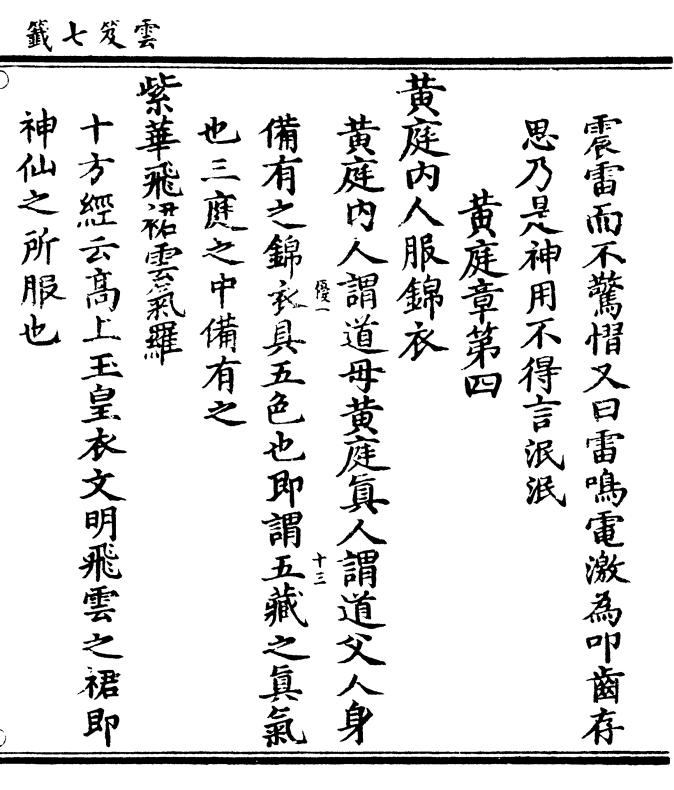 雲笈七籤
震雷而不驚慴又曰雷鳴電激為叩齒存
思乃是神用不得言泯泯
黄庭章第四
黄庭内人服錦衣
黄庭内人謂道母黄庭真人謂道父人身
優一
十三
備有之錦衣具五色也即謂五藏之真氣
也三庭之中備有之
紫華飛裙雲氣羅
十方經云高上玉皇衣文明飛雲之裙即
神仙之所服也